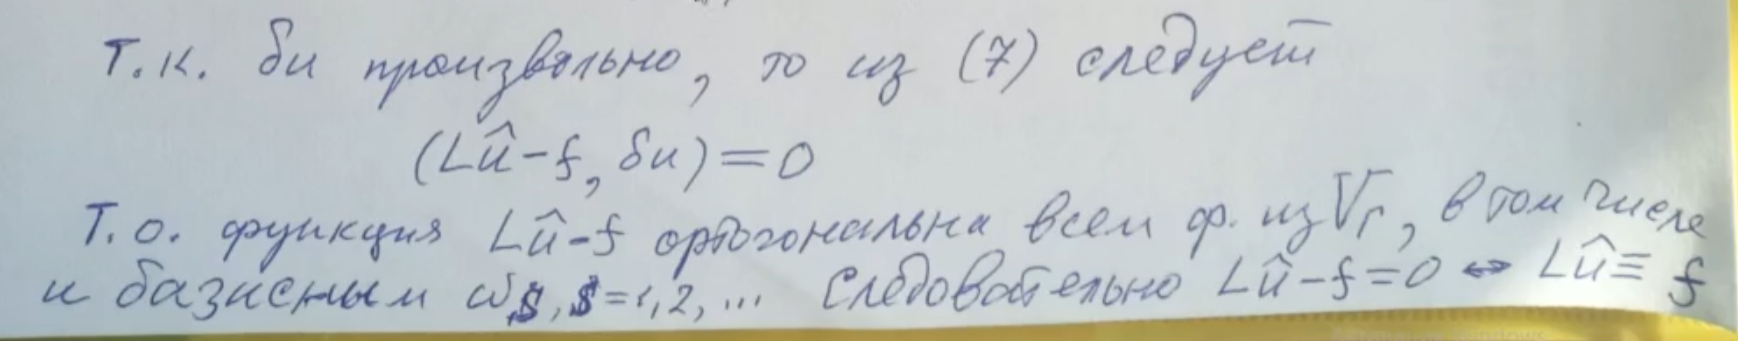 Т.к. δu произвольно, то из (7) следует
(Lû-f, δu)=0
Т.о. функция Lû-f ортогональна всем ф. из V_Г, в том числе
и базисным ω_s, s=1,2,... Следовательно Lû-f=0 ⇔ Lû≡f